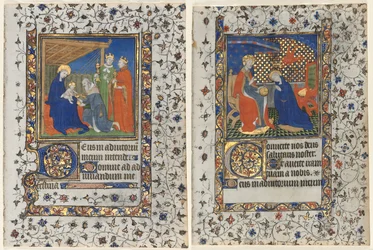 Deus in adiutoriu
meum intende
Domine ad ad
iuuandum me
festina
Conuerte nos deus
salutaris noster.
Et auerte iram
tuam a nobis.
Deus in adiutorium meum